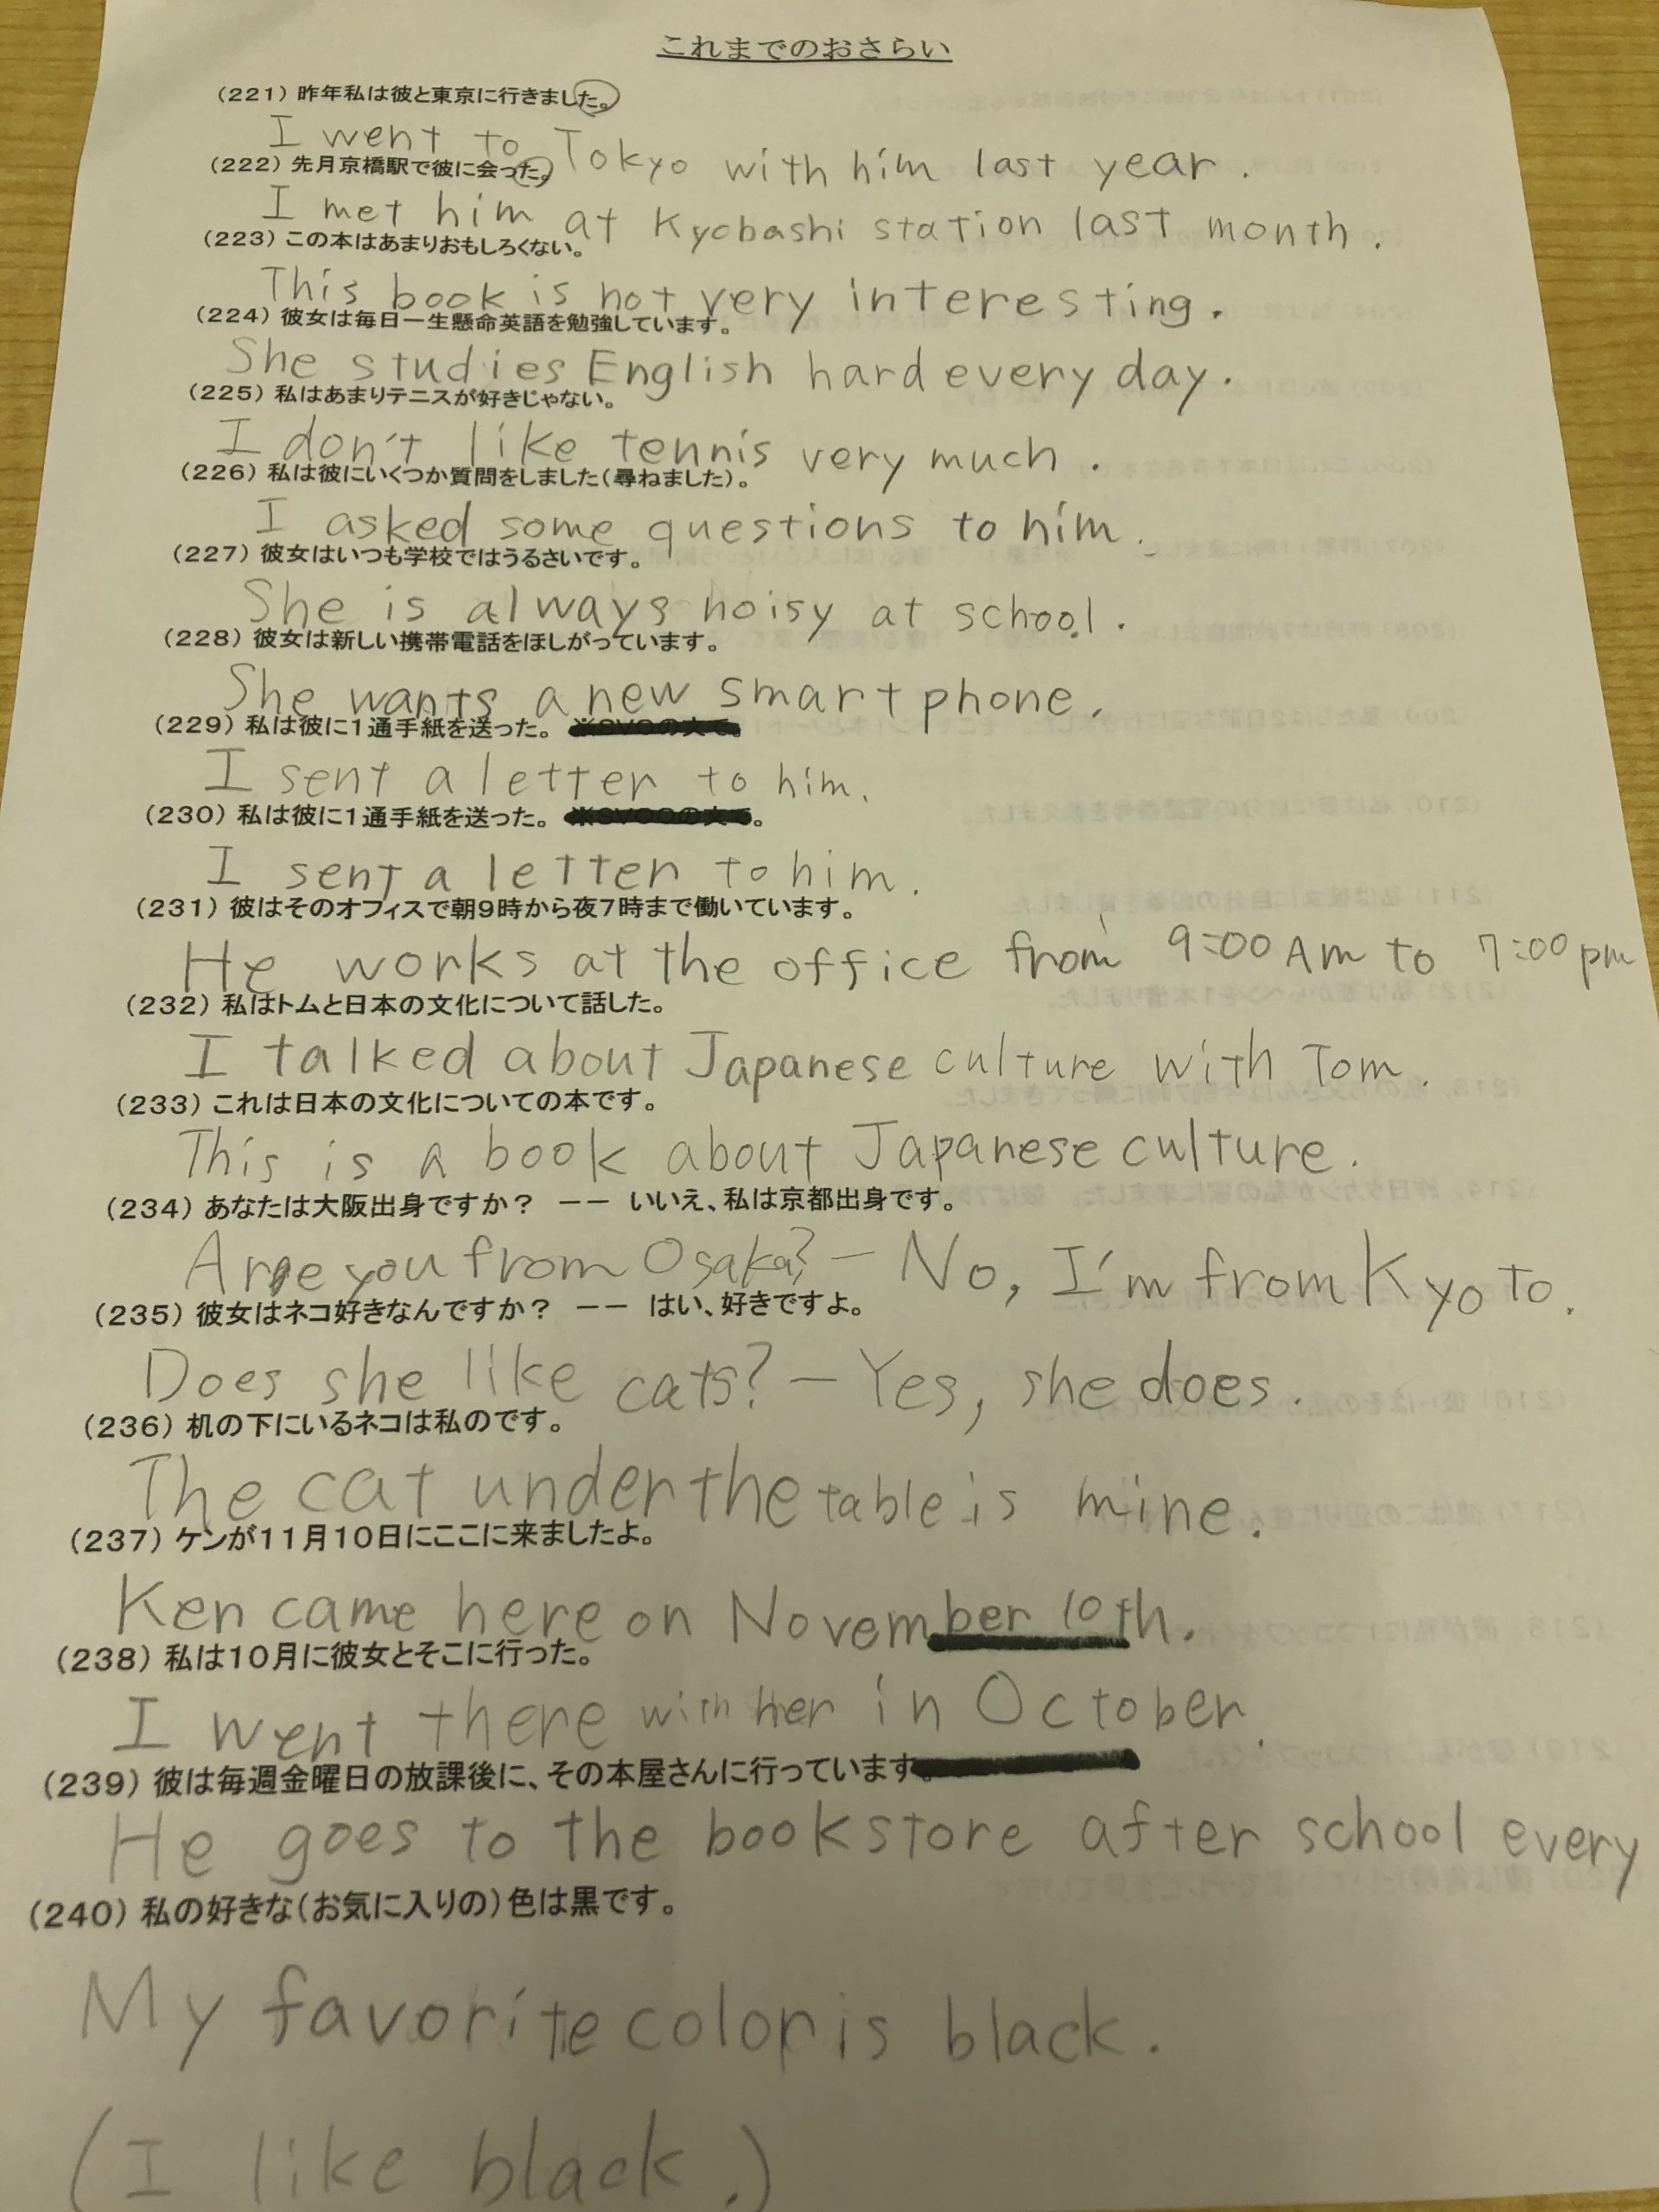 これまでのおさらい
(221) 昨年私は彼と東京に行きました。
I went to Tokyo with him last year.
(222) 先月京橋駅で彼に会った。
I met him at Kyobashi station last month.
(223) この本はあまりおもしろくない。
This book is not very interesting.
(224) 彼女は毎日一生懸命英語を勉強しています。
She studies English hard every day.
(225) 私はあまりテニスが好きじゃない。
I don't like tennis very much.
(226) 私は彼にいくつか質問をしました(尋ねました)。
I asked some questions to him.
(227) 彼女はいつも学校ではうるさいです。
She is always noisy at school.
(228) 彼女は新しい携帯電話をほしがっています。
She wants a new smart phone.
(229) 私は彼に1通手紙を送った。
I sent a letter to him.
(230) 私は彼に1通手紙を送った。 。
I sent a letter to him.
(231) 彼はそのオフィスで朝9時から夜7時まで働いています。
He works at the office from 9:00 Am to 7:00 pm
(232) 私はトムと日本の文化について話した。
I talked about Japanese culture with Tom.
(233) これは日本の文化についての本です。
This is a book about Japanese culture.
(234) あなたは大阪出身ですか? ―― いいえ、私は京都出身です。
Are you from Osaka? — No, I'm from Kyoto.
(235) 彼女はネコ好きなんですか? ―― はい、好きですよ。
Does she like cats? — Yes, she does.
(236) 机の下にいるネコは私のです。
The cat under the table is mine.
(237) ケンが11月10日にここに来ましたよ。
Ken came here on November 10th.
(238) 私は10月に彼女とそこに行った。
I went there with her in October.
(239) 彼は毎週金曜日の放課後に、その本屋さんに行っています。
He goes to the bookstore after school every
(240) 私の好きな(お気に入りの)色は黒です。
My favorite color is black.
(I like black.)